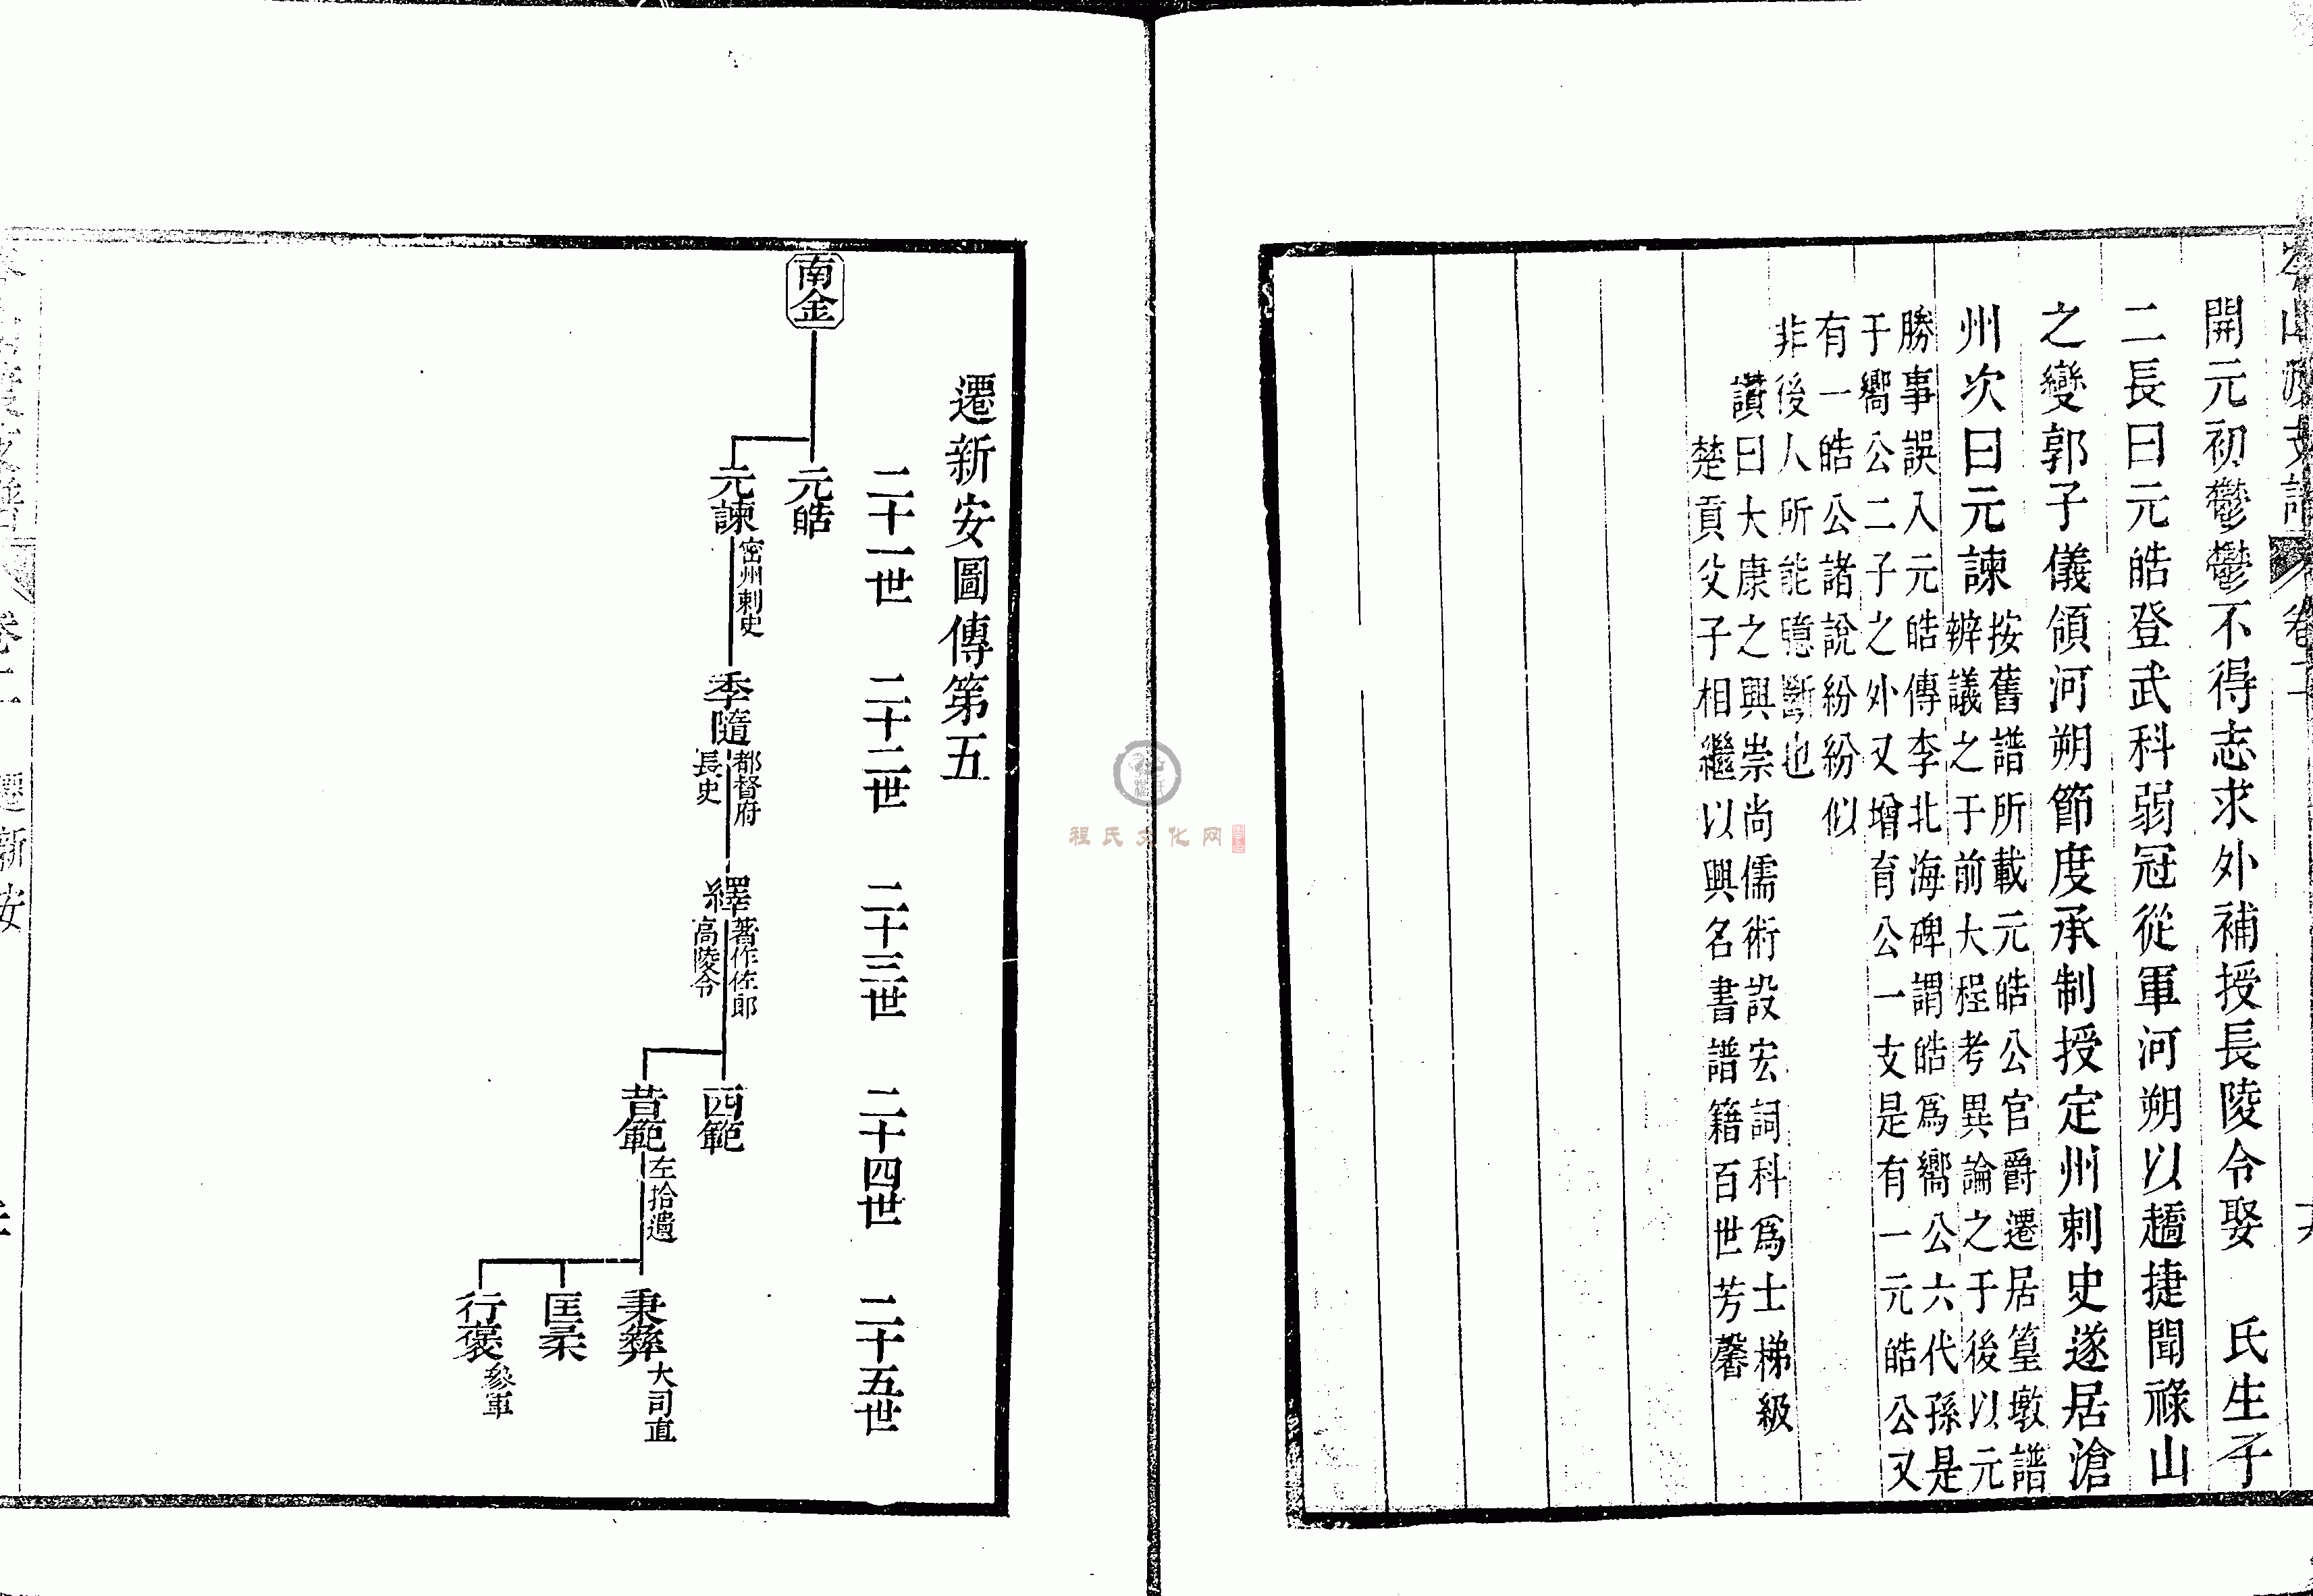 開元初鬱鬱不得志求外補授長陵令娶　氏生子
二長曰元皓登武科弱冠從軍河朔以趫捷聞祿山
之變郭子儀領河朔節度承制授定州刺史遂居滄
州次曰元諫
按舊譜所載元皓公官爵遷居篁墩譜
辨議之于前大程考異論之于後以元
勝事誤入元皓傳李北海碑謂皓爲嚮公六代孫是
于嚮公二子之外又增育公一支是有一元皓公又
有一皓公諸說紛紛似
非後人所能臆斷也
讃曰大康之興崇尚儒術設宏詞科爲士梯級
楚貢父子相繼以興名書譜籍百世芳馨
卷二
遷新安圖傳第五
二十一世　二十二世　二十三世　二十四世　二十五世
南金
元皓
元諫
密州刺史
季隨
都督府
長史
繹
著作佐郎
高陵令
西範
昔範
左拾遺
秉彝
大司直
匡柔
行褒
參軍
卷二　遷新安
程氏文化网